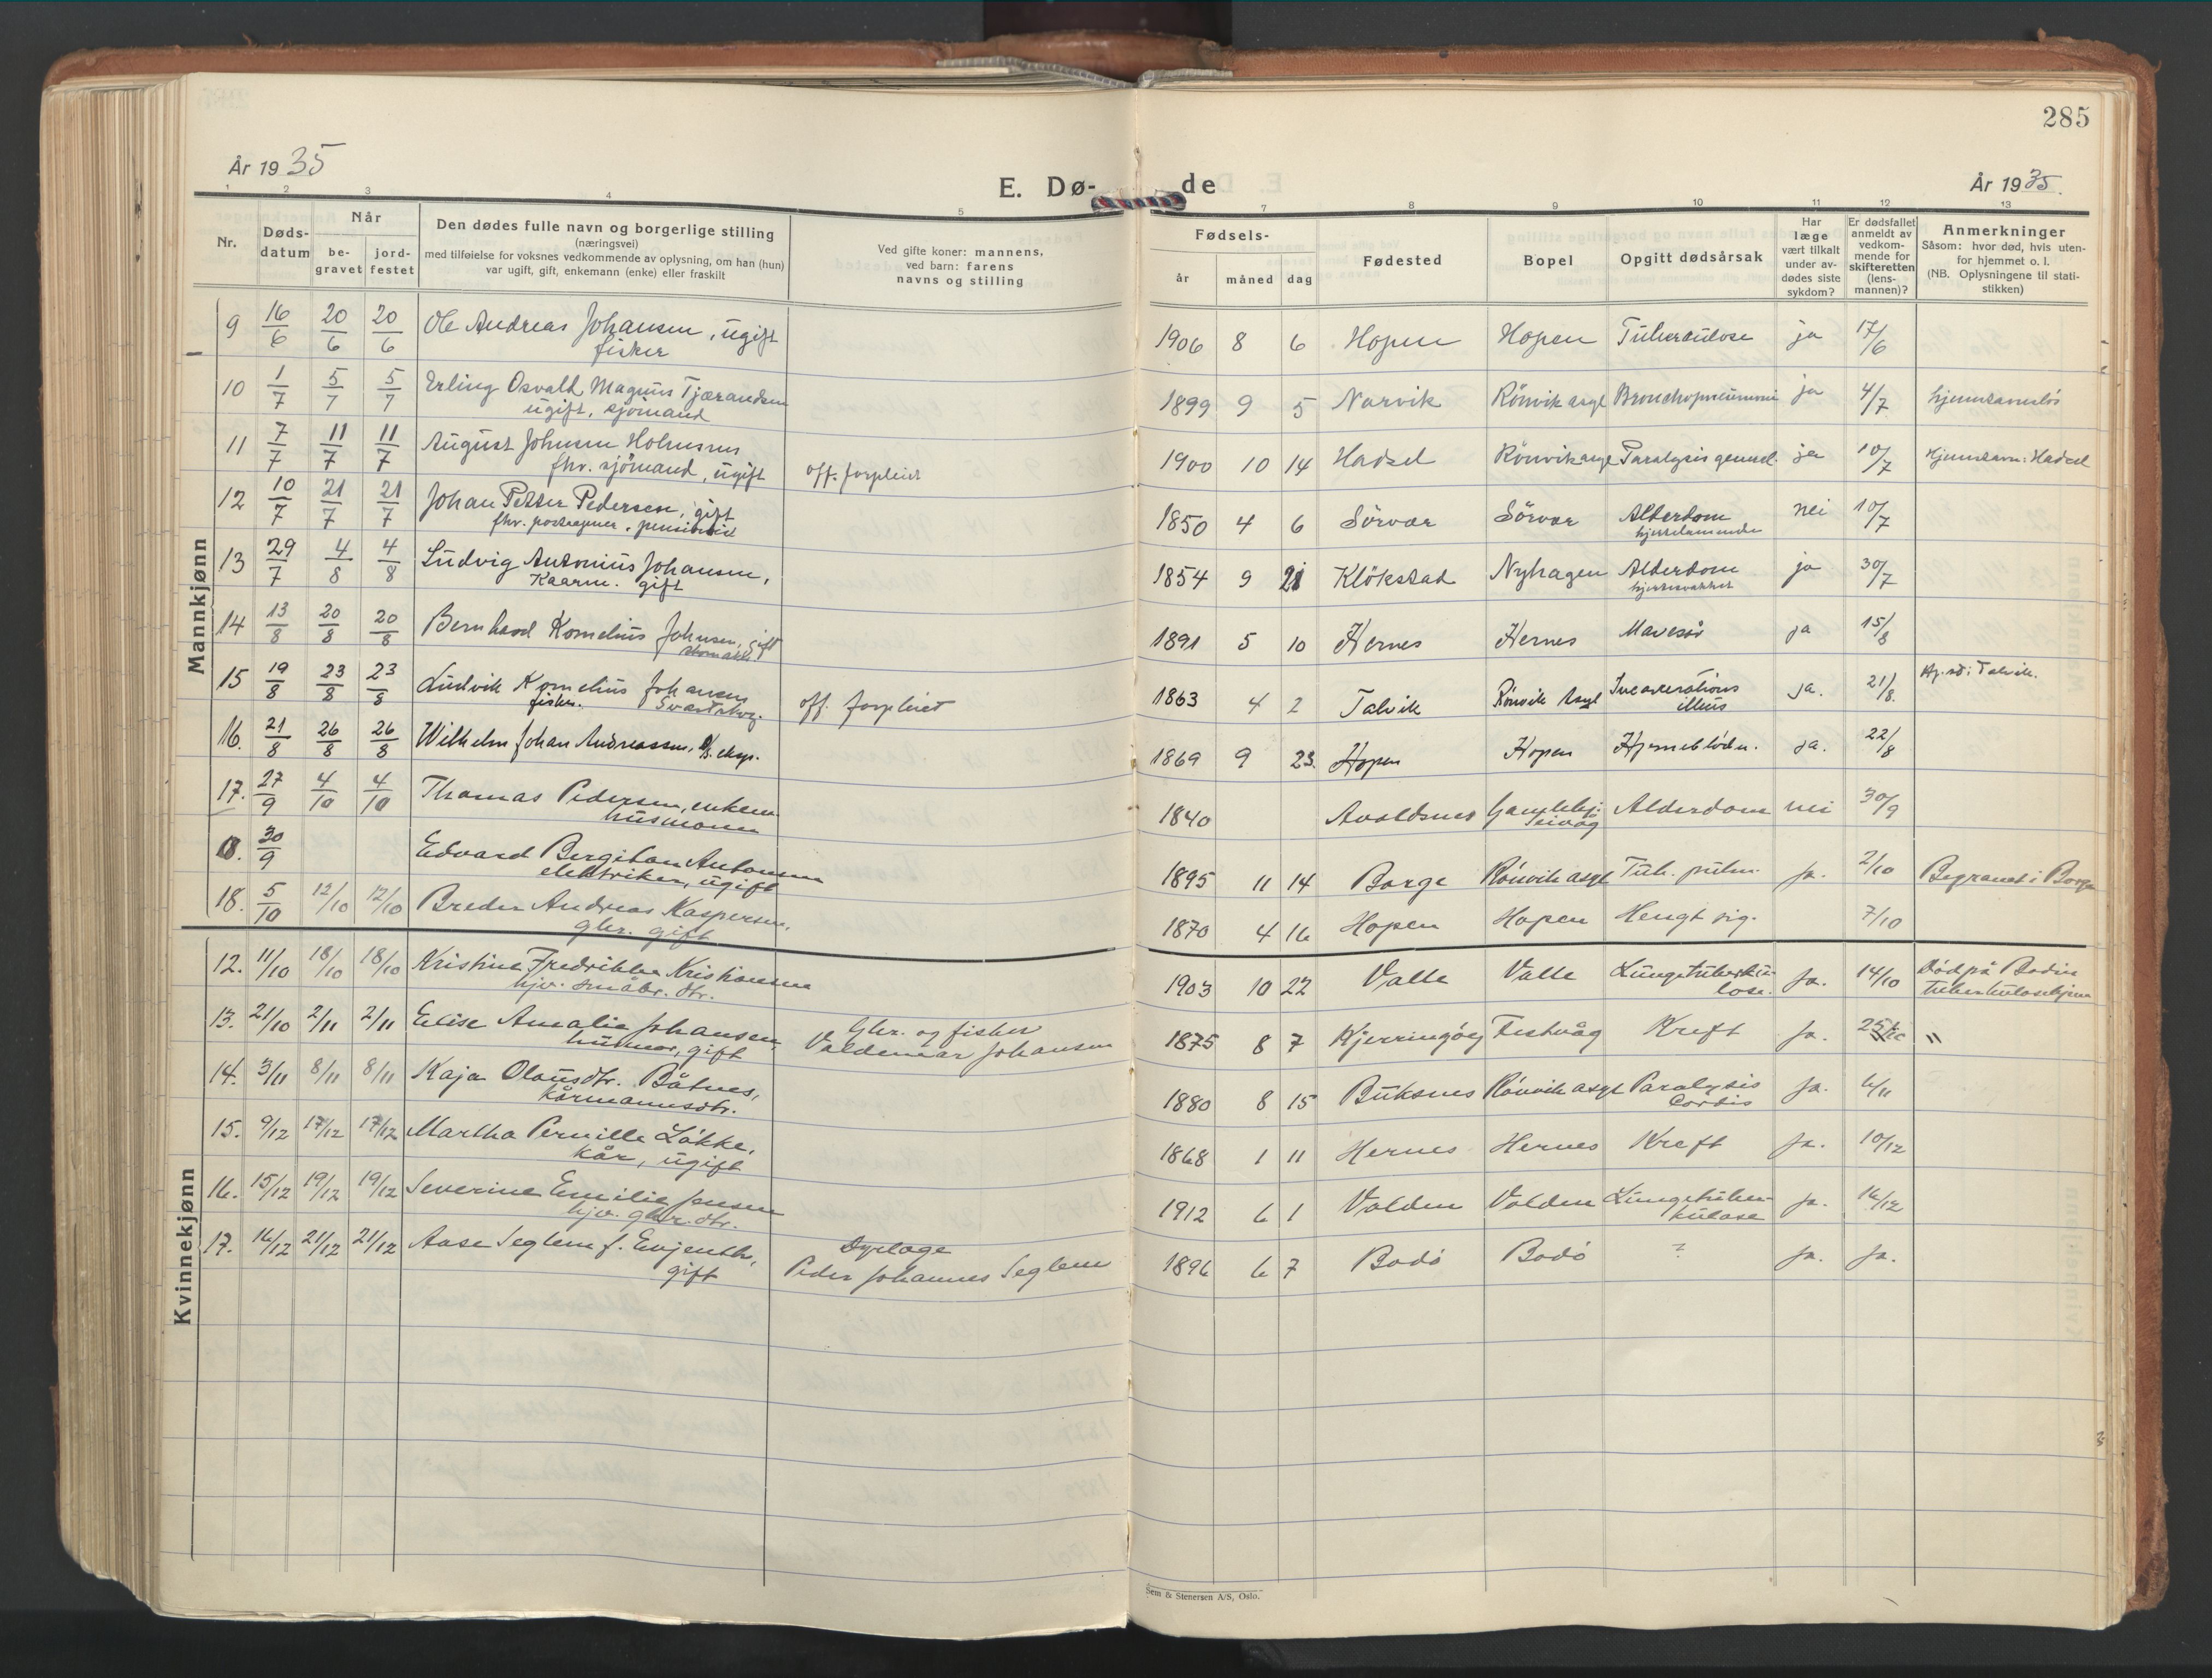 285
År 1935
E. Dø-
de
År 1935.
1 2 3 4 5 7 8 9 10 11 12 13
Nr.
Døds-
datum
Når
be-
gravet
jord-
festet
Den dødes fulle navn og borgerlige stilling
(næringsvei)
med tilføielse for voksnes vedkommende av oplysning, om han (hun)
var ugift, gift, enkemann (enke) eller fraskilt
Ved gifte koner: mannens,
ved barn: farens
navns og stilling
Fødsels-
år måned dag
Fødested
Bopel
Opgitt dødsårsak
Har
læge
vært tilkalt
under av-
dødes siste
sykdom?
Er dødsfallet
anmeldt av
vedkom-
mende for
skifteretten
(lens-
mannen)?
Anmerkninger
Såsom: hvor død, hvis uten-
for hjemmet o. l.
(NB. Oplysningene til stati-
stikken)
Mannkjønn
9 16/6 20/6 20/6 Ole Andreas Johansen, ugift 1906 8 6 Hopen Hopen Tuberculose ja 17/6
fisker
10 1/7 5/7 5/7 Erling Osvald Magnus Tjærandsen 1899 9 5 Narvik Rönvik asyl Bronchopneumoni ja 4/7 hjemstavnslös
ugift, sjömand
11 7/7 11/7 11/7 August Johnsen 1900 10 14 Hadsel Rönvik asyl Paralysis generel. ja 10/7 Hjemstavn: Hadsel
fhv. sjömand, ugift off. forpleiet
12 10/7 21/7 21/7 Johan Petter Pedersen, gift 1850 4 6 Sörvær Sörvær Alderdom nei 10/7
fhv.
13 29/7 4/8 4/8 Ludvig Antonius Johansen, 1854 9 21 Klökstad Nyhagen Alderdom ja 30/7
Kaarm. gift hjertesvakhet
14 13/8 20/8 20/8 Bernhard Kornelius Johnsen, gift 1891 5 10 Hernes Hernes Mavesår ja 15/8
15 19/8 23/8 23/8 Ludvik Kornelius Johansen off. forpleiet 1863 4 2 Talvik Rönvik Asyl Incarcerations ja. 21/8. Hj.st: Talvik.
fisker. Svartskog. illeus
16. 21/8 26/8 26/8 Wilhelm Johan Andreassen, eksp. 1869 9 23. Hopen Hopen Hjerneblödn. ja. 22/8
17. 27/9 4/10 4/10 Thomas Pedersen, enkem. 1840 Avaldsnes Gamlehj. Alderdom nei 30/9
husmann Seivåg
30/9 Edvard Bergiton Antonsen 1895 11 14 Borge Rönvik asyl Tub. pulm. ja. 2/10 Begravet i Borge
elektriker, ugift
18. 5/10 12/10 12/10 Breder Andreas Kaspersen, 1870 4 16 Hopen Hopen Hengt sig. 7/10
gbr. gift
Kvinnekjønn
12. 11/10 18/10 18/10 Kristine Fredrikke Kristiansen 1903 10 22 Valle Valle Lungetuberku- Ja. 14/10 Död på Bodin
hjv. småbr. dtr. lose. tuberkulosehjem
13. 21/10 2/11 2/11 Elise Amalie Johansen, Gbr. og fisker 1875 8 7 Kjerringöy Festvåg Kreft Ja. "
husmor, gift Valdemar Johansen
14. 3/11 8/11 8/11 Kaja Olausdtr. Båtnes, 1880 8 15 Buksnes Rönvik asyl Paralysis Ja. 6/11
kårmannsdtr. Cordis
15. 9/12 17/12 17/12 Martha Pernille Lökke, 1868 1 11 Hernes Hernes Kreft Ja. 10/12
kår, ugift
16. 15/12 19/12 19/12 Severine Emilie Jensen 1912 6 1 Valden Valden Lungetuber- Ja. 16/12
hjv. gbr. dtr. kulose
17. 16/12 21/12 21/12 Aase Seglem f. Evjenth, Dyrlæge 1896 6 7 Bodö Bodö ? Ja. Ja.
gift Peder Johannes Seglem
Sem & Stenersen A/S, Oslo.